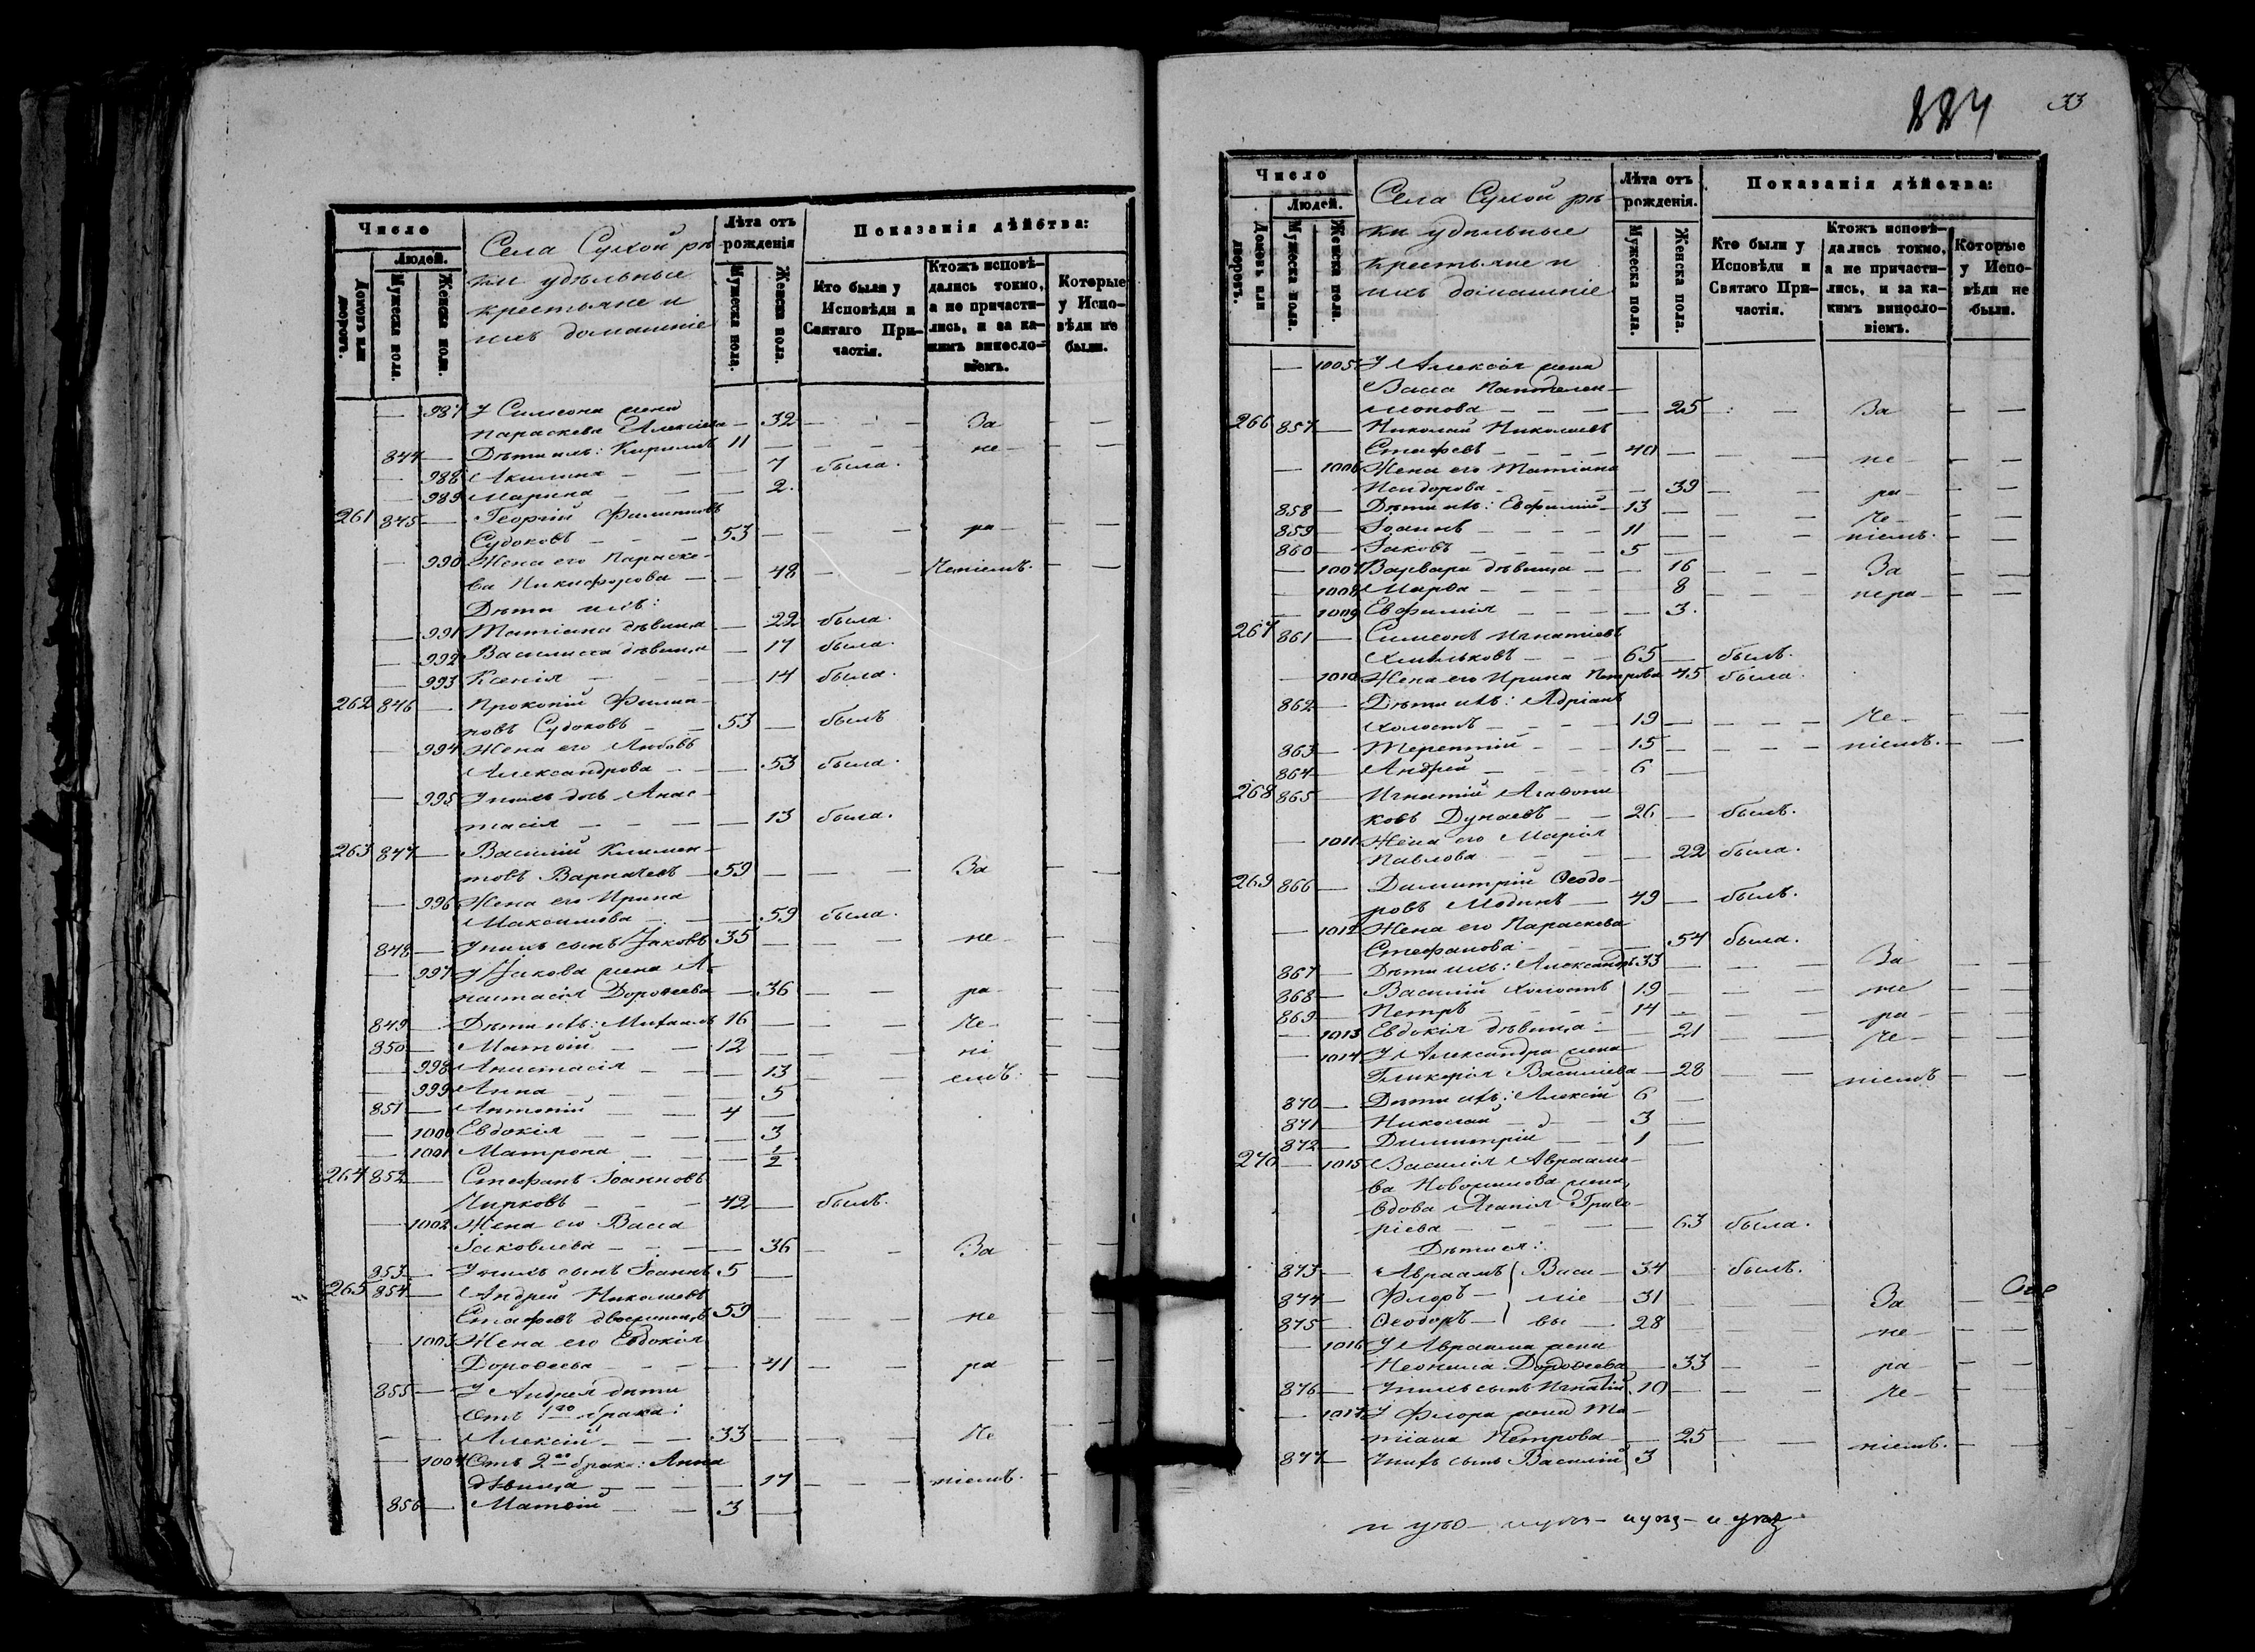 Число
Людей.
Домовъ или дворовъ.
Мужеска пола.
Женска пола.
Села Сухой рѣ-
ки удѣльные
крестьяне и
ихъ домашніе
Лѣта отъ рожденія
Мужеска пола.
Женска пола.
Показанія дѣйства:
Кто были у Исповѣди и Святаго Причастія.
Ктожъ исповѣ-дались токмо, а не причасти-лись, и за ка-кимъ винословіемъ.
Которые у Испо-вѣди не были.
— 987 У Симеона жена
Параскева Алексіева — 32 — — За — —
844 — Дѣти ихъ: Кириллъ 11 — — — не — —
— 988 Акилина — — — 7 была.
— 989 Марина — — — 2.
261 845 — Георгій Филиповъ
Судоковъ — — — 53 — — — ра — —
— 990 Жена его Параске-
ва Никифорова — — 48 — — Неніемъ. — —
Дѣти ихъ:
— 991 Татіана дѣвица — 22 была.
— 992 Василисса дѣвица — 17 была.
— 993 Ксенія — — — 14 была.
262 846 — Прокопій Филип-
повъ Судоковъ — 53 — былъ
— 994 Жена его Любовь
Александрова — — 53 была.
— 995 У нихъ дочь Анас-
тасія — — — — 13 была.
263 847 — Василій Климен-
товъ Варначевъ — 59 — — — За — —
— 996 Жена его Ирина
Максимова — — — 59 была.
848 — У нихъ сынъ Іаковъ 35 — — — не — —
— 997 У Іакова жена А-
настасія Дороѳеева — 36 — — ра — —
849 — Дѣти ихъ: Михаилъ 16 — — — Не — —
850 — Матѳій — — 12 — — — ні — —
— 998 Анастасія — — — 13 — — емъ: — —
— 999 Анна — — — — 5
851 — Антоній — — 4 —
— 1000 Евдокія — — — — 3
— 1001 Матрона — — — 1/2
264 852 — Стефанъ Іоанновъ
Чирковъ — — — 42 — былъ.
— 1002 Жена его Васса
Іаковлева — — — 36 — — За — —
853 — У нихъ сынъ Іоаннъ 5 —
265 854 — Андрей Николаевъ
Стафеевъ двоеженецъ 59 — — — не — —
— 1003 Жена его Евдокія
Дороѳеева — — — 41 — — ра — —
855 — У Андрея дѣти
отъ 1го брака:
Алексій — — — 33 — — — Не — —
— 1004 Отъ 2го брака: Анна
дѣвица — — — — 17 — — ніемъ. — —
856 — Матѳій — — 3 —
884 33
Число
Людей.
Домовъ или дворовъ.
Мужеска пола.
Женска пола.
Села Сухой рѣ-
ки удѣльные
крестьяне и
ихъ домашніе
Лѣта отъ рожденія.
Мужеска пола.
Женска пола.
Показанія дѣйства:
Кто были у Исповѣди и Святаго При-частія.
Ктожъ исповѣ-дались токмо, а не причасти-лись, и за ка-кимъ винословіемъ.
Которые у Испо-вѣди не были.
— 1005 У Алексія жена
Васса Пантелеи-
монова — — — — 25 — — За — —
266 857 — Николай Николаевъ
Стафеевъ — — — 40 — — — не — —
— 1006 Жена его Татіана
Исидорова — — — — 39 — — ра — —
858 — Дѣти ихъ: Евфимій — 13 — — — Не — —
859 — Іоаннъ — — — — 11 — — — ніемъ. — —
860 — Іаковъ — — — — 5 —
— 1007 Варвара дѣвица — — 16 — — За — —
— 1008 Марѳа — — — — 8 — — нера — —
— 1009 Евфимія — — — — 3.
267 861 — Симеонъ Игнатіевъ
Хмѣльковъ — — — 65 — былъ.
— 1010 Жена его Ирина Петрова 45 была.
862 — Дѣти ихъ: Адріанъ
холостъ — — — — 19 — — — Не — —
863 — Терентій — — — 15 — — — ніемъ. — —
864 — Андрей — — — 6 —
268 865 — Игнатій Агаѳони-
ковъ Дунаевъ — — 26 — былъ.
— 1011 Жена его Марія
Павлова — — — — 22 была.
269 866 — Димитрій Ѳеодо-
ровъ Модинъ — 49 — былъ.
— 1012 Жена его Параскева
Стефанова — — — 54 была.
867 — Дѣти ихъ: Александръ 33 — — — За — —
868 — Василій холостъ 19 — — — не — —
869 — Петръ — — — 14 — — — ра — —
— 1013 Евдокія дѣвица — — 21 — — Не — —
— 1014 У Александра жена
Гликерія Василіева — 28 — — ніемъ — —
870 — Дѣти ихъ: Алексій 6 —
871 — Николай — — 3 —
872 — Димитрій — — 1 —
270 — 1015 Василія Авраамо-
ва Новоселова жена,
вдова Агапія Григо-
ріева — — — — — 63 была.
Дѣти ея:
873 — Авраамъ } Васи — 34 былъ.
874 — Флоръ — } ліе 31 — — — За — —
875 — Ѳеодоръ — } вы — 28 — — — не — —
— 1016 У Авраама жена
Неонила Дороѳеева — 33 — — ра — —
876 — У нихъ сынъ Игнатій. 10 — — — Не — —
— 1017 У Флора жена Та-
тіана Петрова — — 25 — — ніемъ. — —
877 — У нихъ сынъ Василій 3